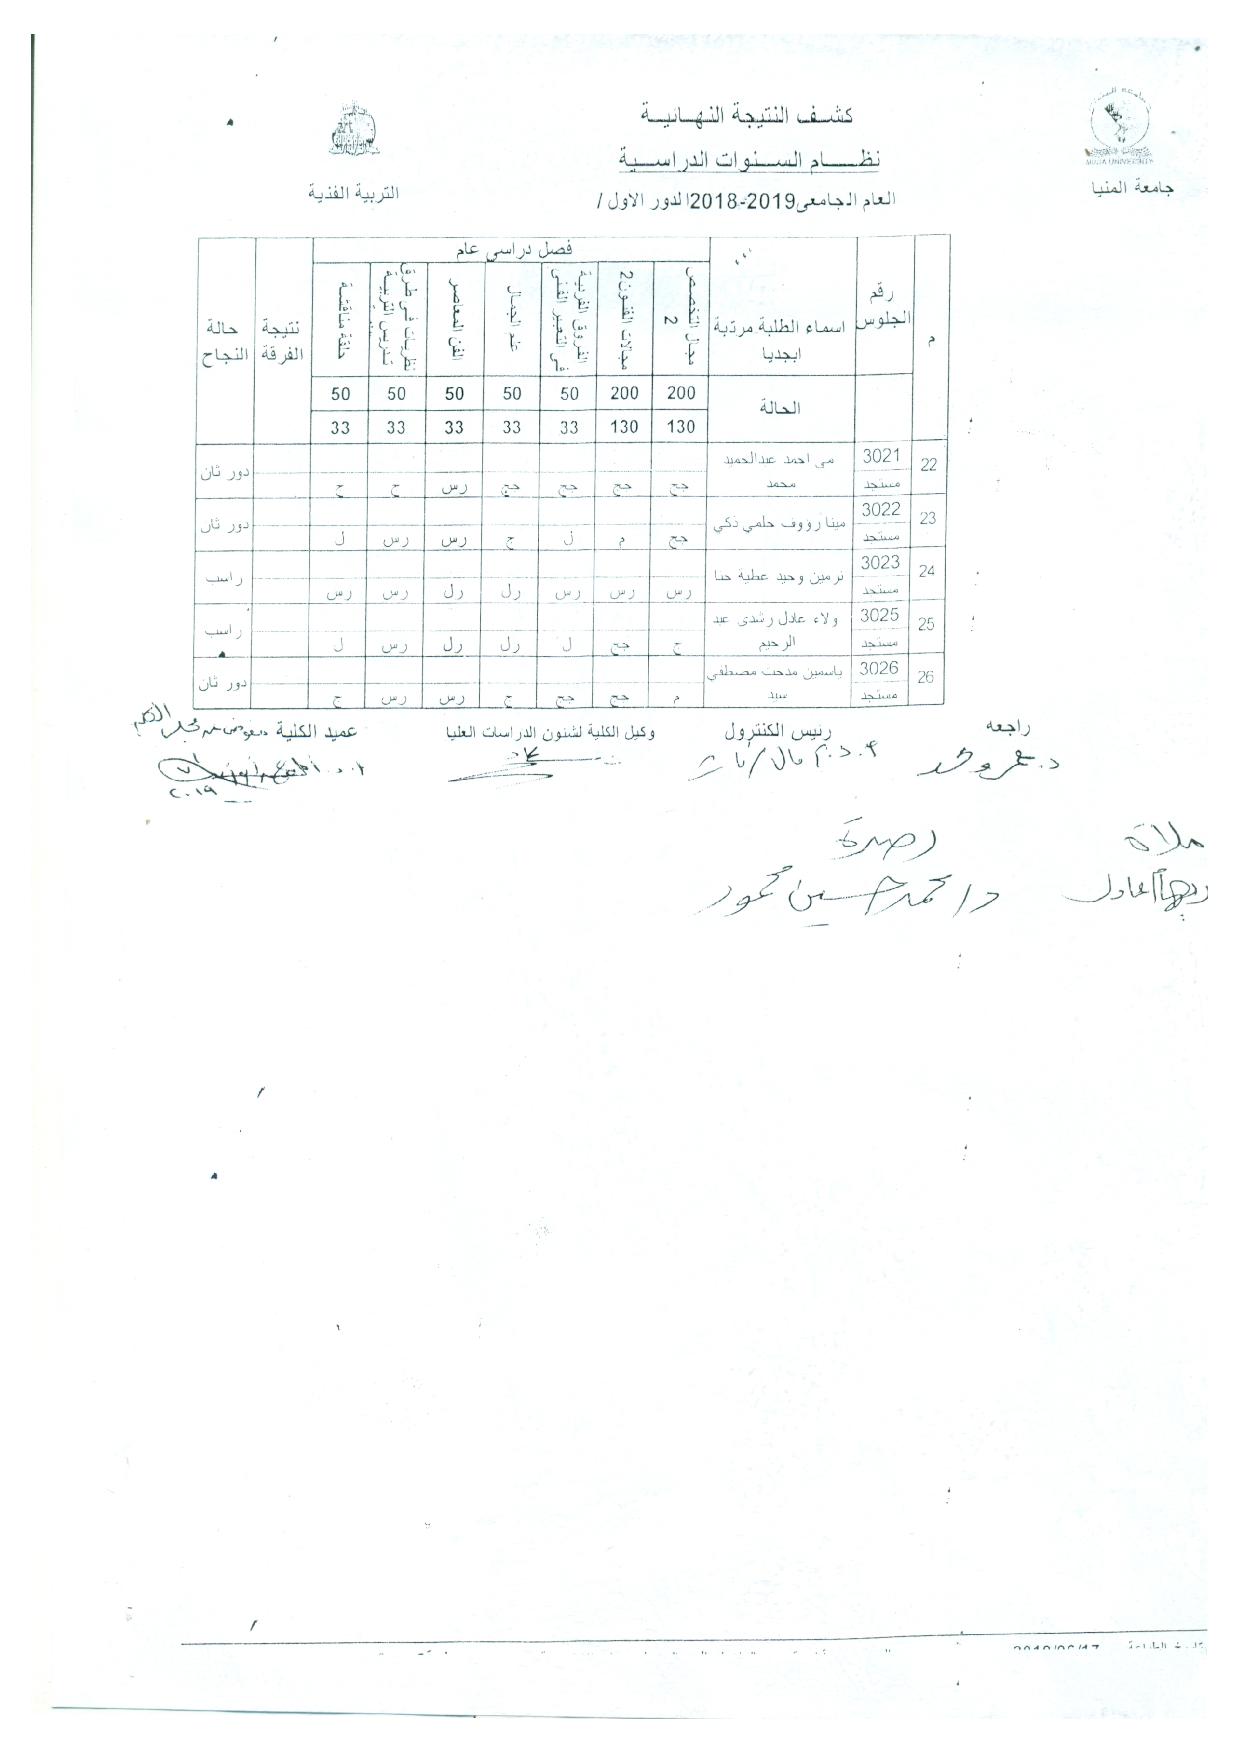 كشف النتيجة النهائية
نظام السنوات الدراسية
العام الجامعى2019-2018الدور الاول /
جامعة المنيا
MINIA UNIVERSITY
التربية الفنية
م
رقم الجلوس
اسماء الطلبة مرتبة ابجديا
فصل دراسى عام
مجال التخصص 2
مجالات الفنون 2
الفروق الفردية فى التعبير الفنى
علم الجمال
الفن المعاصر
نظريات فى طرق تدريس التربية
حلقة مناقشة
نتيجة الفرقة
حالة النجاح
الحالة 200 200 50 50 50 50 50
130 130 33 33 33 33 33
22 3021 مستجد مى احمد عبدالحميد محمد جج جج جج جج رس ج ج دور ثان
23 3022 مستجد مينا رؤوف حلمي ذكي جج م ل ج رس رس ل دور ثان
24 3023 مستجد نرمين وحيد عطية حنا رس رس رس رل رل رس رس راسب
25 3025 مستجد ولاء عادل رشدى عبد الرحيم ج جج ل رل رل رس ل راسب
26 3026 مستجد ياسمين مدحت مصطفي سيد م جج جج ج رس رس ج دور ثان
راجعه
رئيس الكنترول
وكيل الكلية لشئون الدراسات العليا
عميد الكلية
د/ محمد حسين محمود